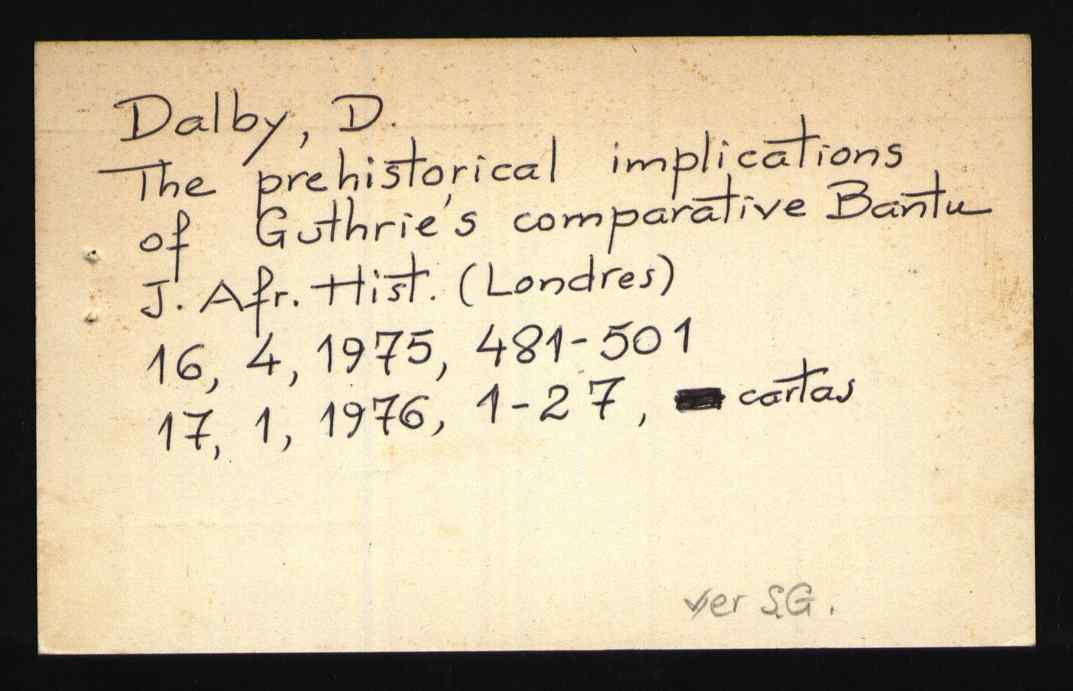 Dalby, D.
The prehistorical implications
of Guthrie's comparative Bantu
J. Afr. Hist. (Londres)
16, 4, 1975, 481-501
17, 1, 1976, 1-27, cartas
ver S.G.